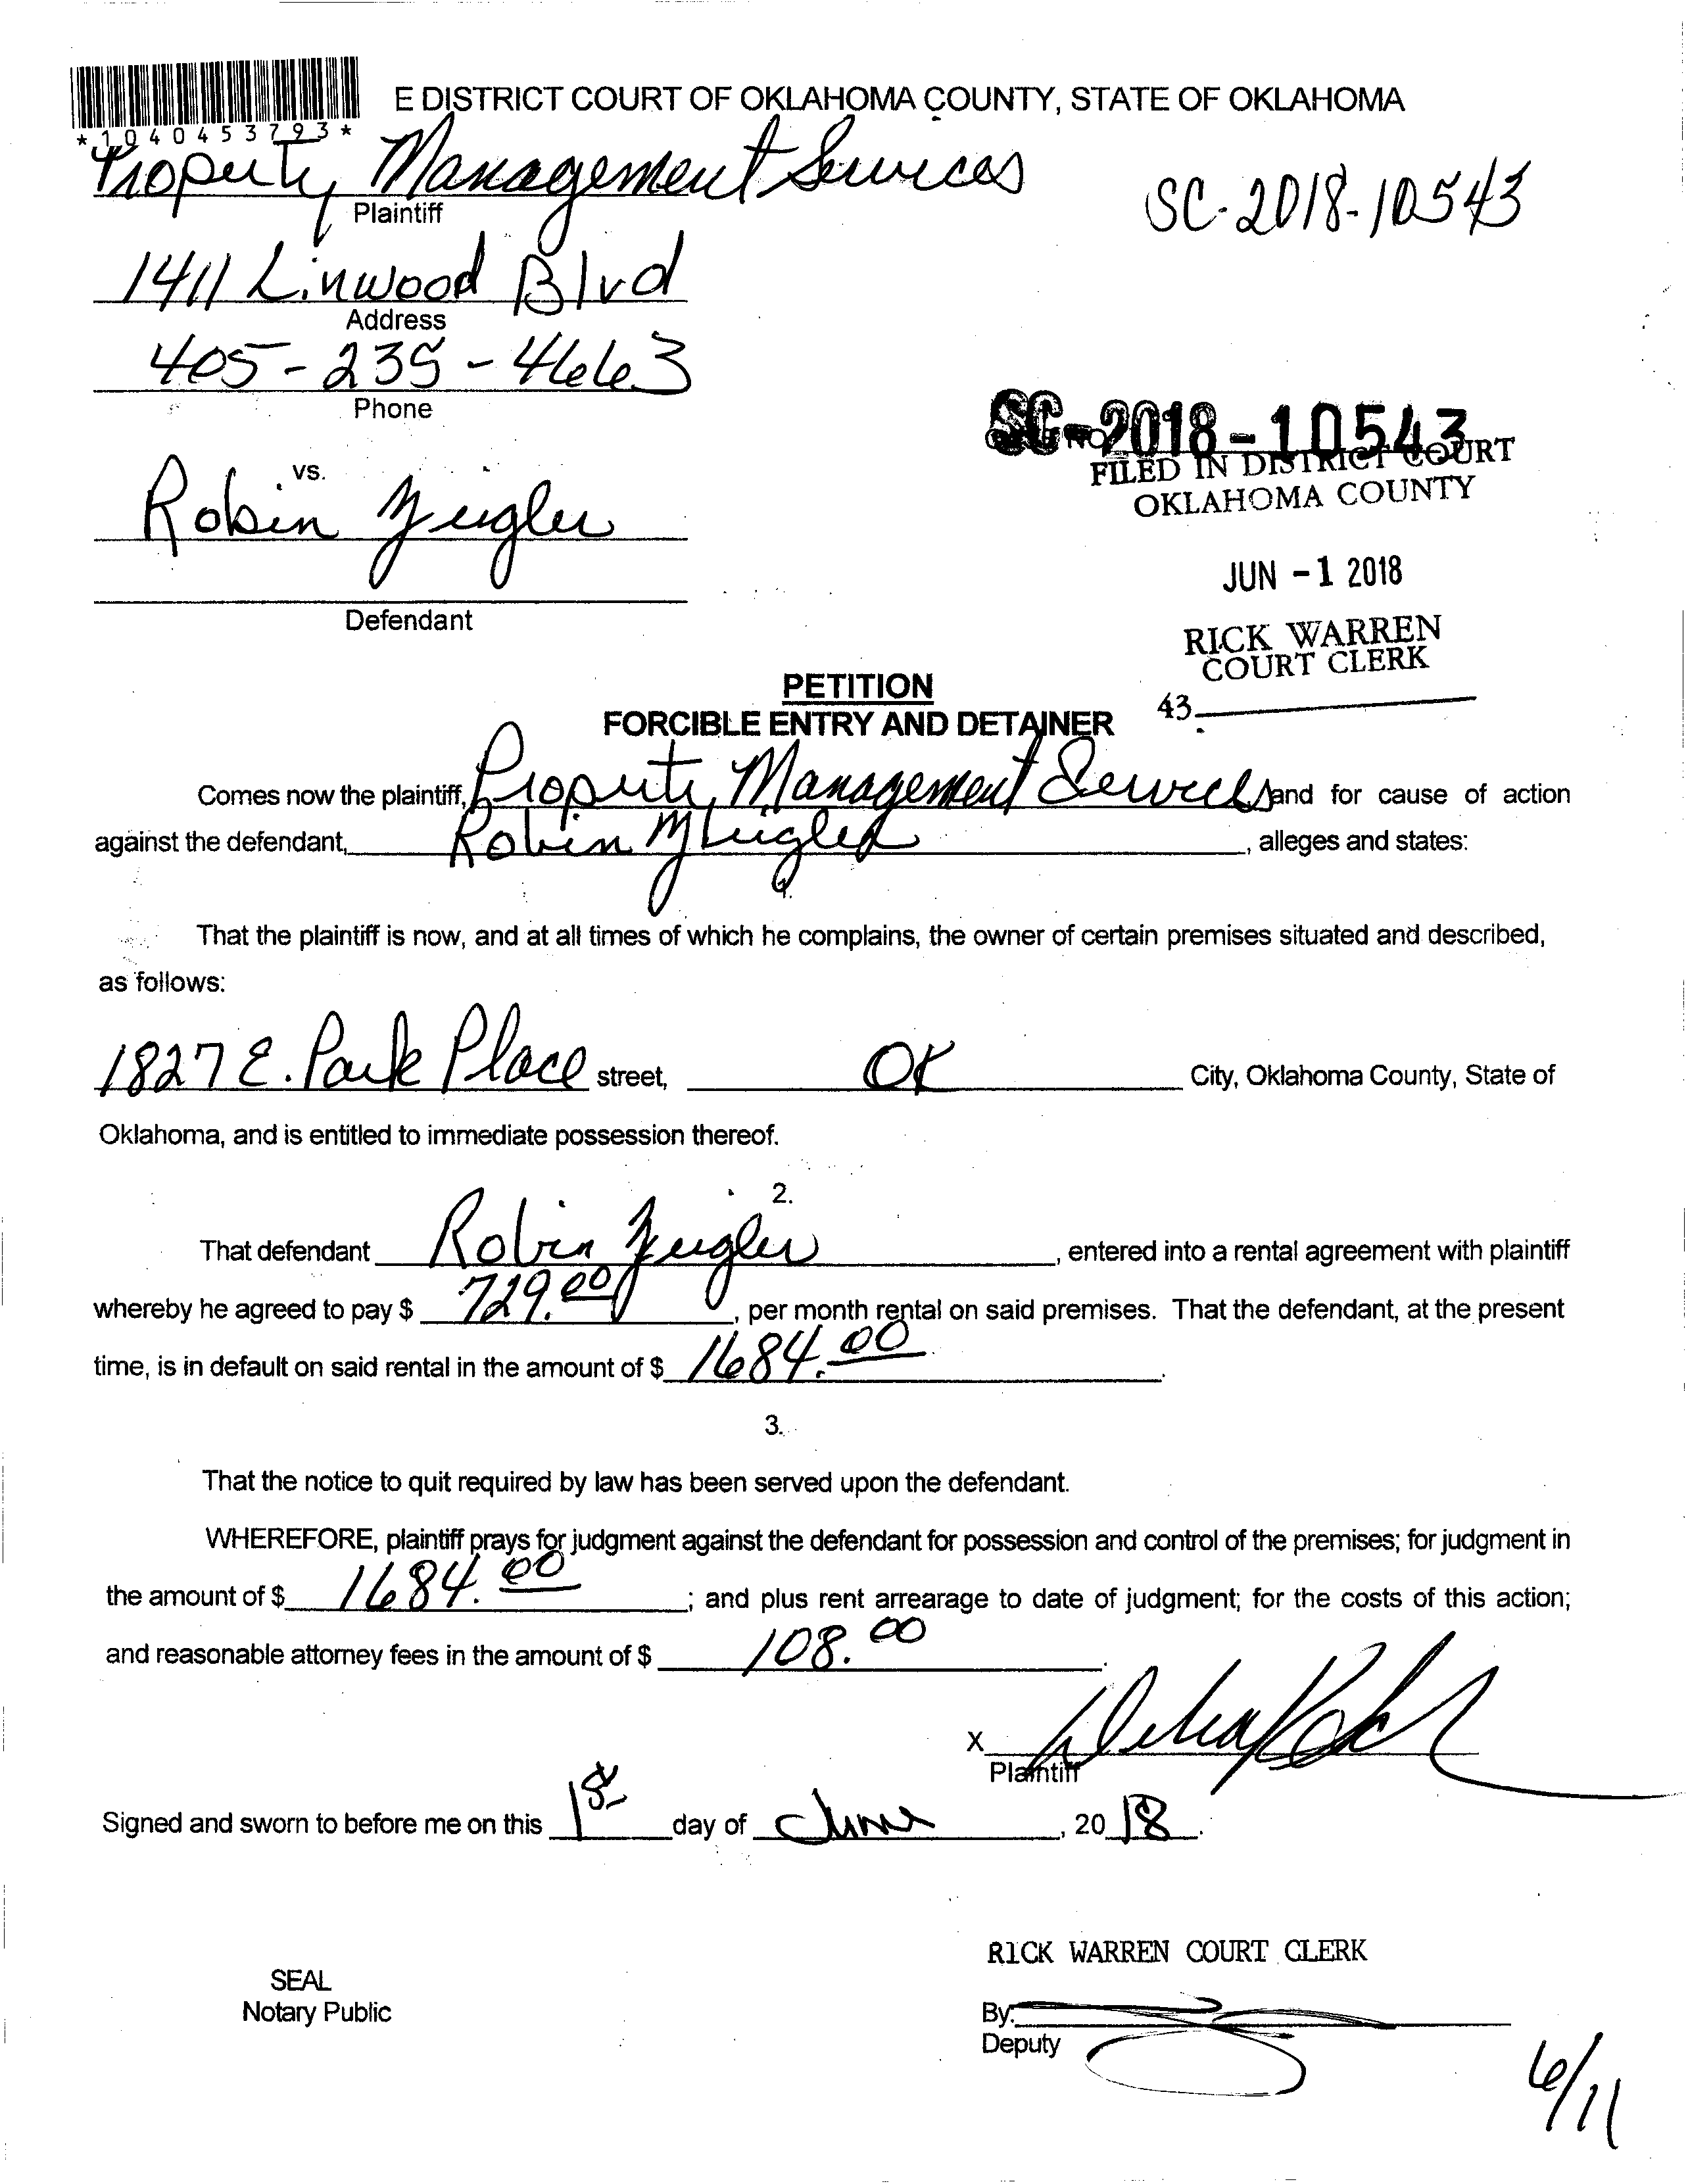 E DISTRICT COURT OF OKLAHOMA COUNTY, STATE OF OKLAHOMA
*1040453793*
Property Management Services
Plaintiff
SC-2018-10543
1411 Linwood Blvd
Address
405-235-4663
Phone
SC-2018-10543
FILED IN DISTRICT COURT
OKLAHOMA COUNTY
vs.
Robin Zeigler
JUN -1 2018
Defendant
RICK WARREN
COURT CLERK
43
PETITION
FORCIBLE ENTRY AND DETAINER
Comes now the plaintiff, Property Management Services and for cause of action
against the defendant, Robin Zeigler, alleges and states:
1.
That the plaintiff is now, and at all times of which he complains, the owner of certain premises situated and described,
as follows:
1827 E. Park Place street, OK City, Oklahoma County, State of
Oklahoma, and is entitled to immediate possession thereof.
2.
That defendant Robin Zeigler, entered into a rental agreement with plaintiff
whereby he agreed to pay $ 729.00, per month rental on said premises. That the defendant, at the present
time, is in default on said rental in the amount of $ 1684.00.
3.
That the notice to quit required by law has been served upon the defendant.
WHEREFORE, plaintiff prays for judgment against the defendant for possession and control of the premises; for judgment in
the amount of $ 1684.00; and plus rent arrearage to date of judgment; for the costs of this action;
and reasonable attorney fees in the amount of $ 108.00.
X
Plaintiff
Signed and sworn to before me on this 1st day of June, 2018.
RICK WARREN COURT CLERK
SEAL
Notary Public
By:
Deputy
6/11